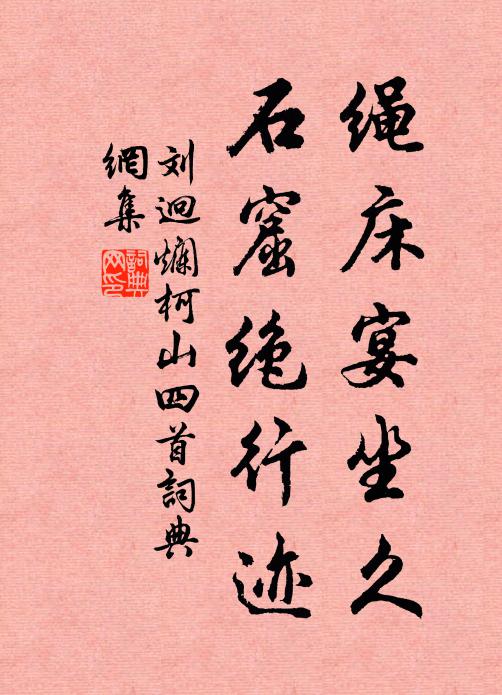 绳床宴坐久
石窟绝行迹
刘迥爛柯山四首詞典
網集
詞典
网印